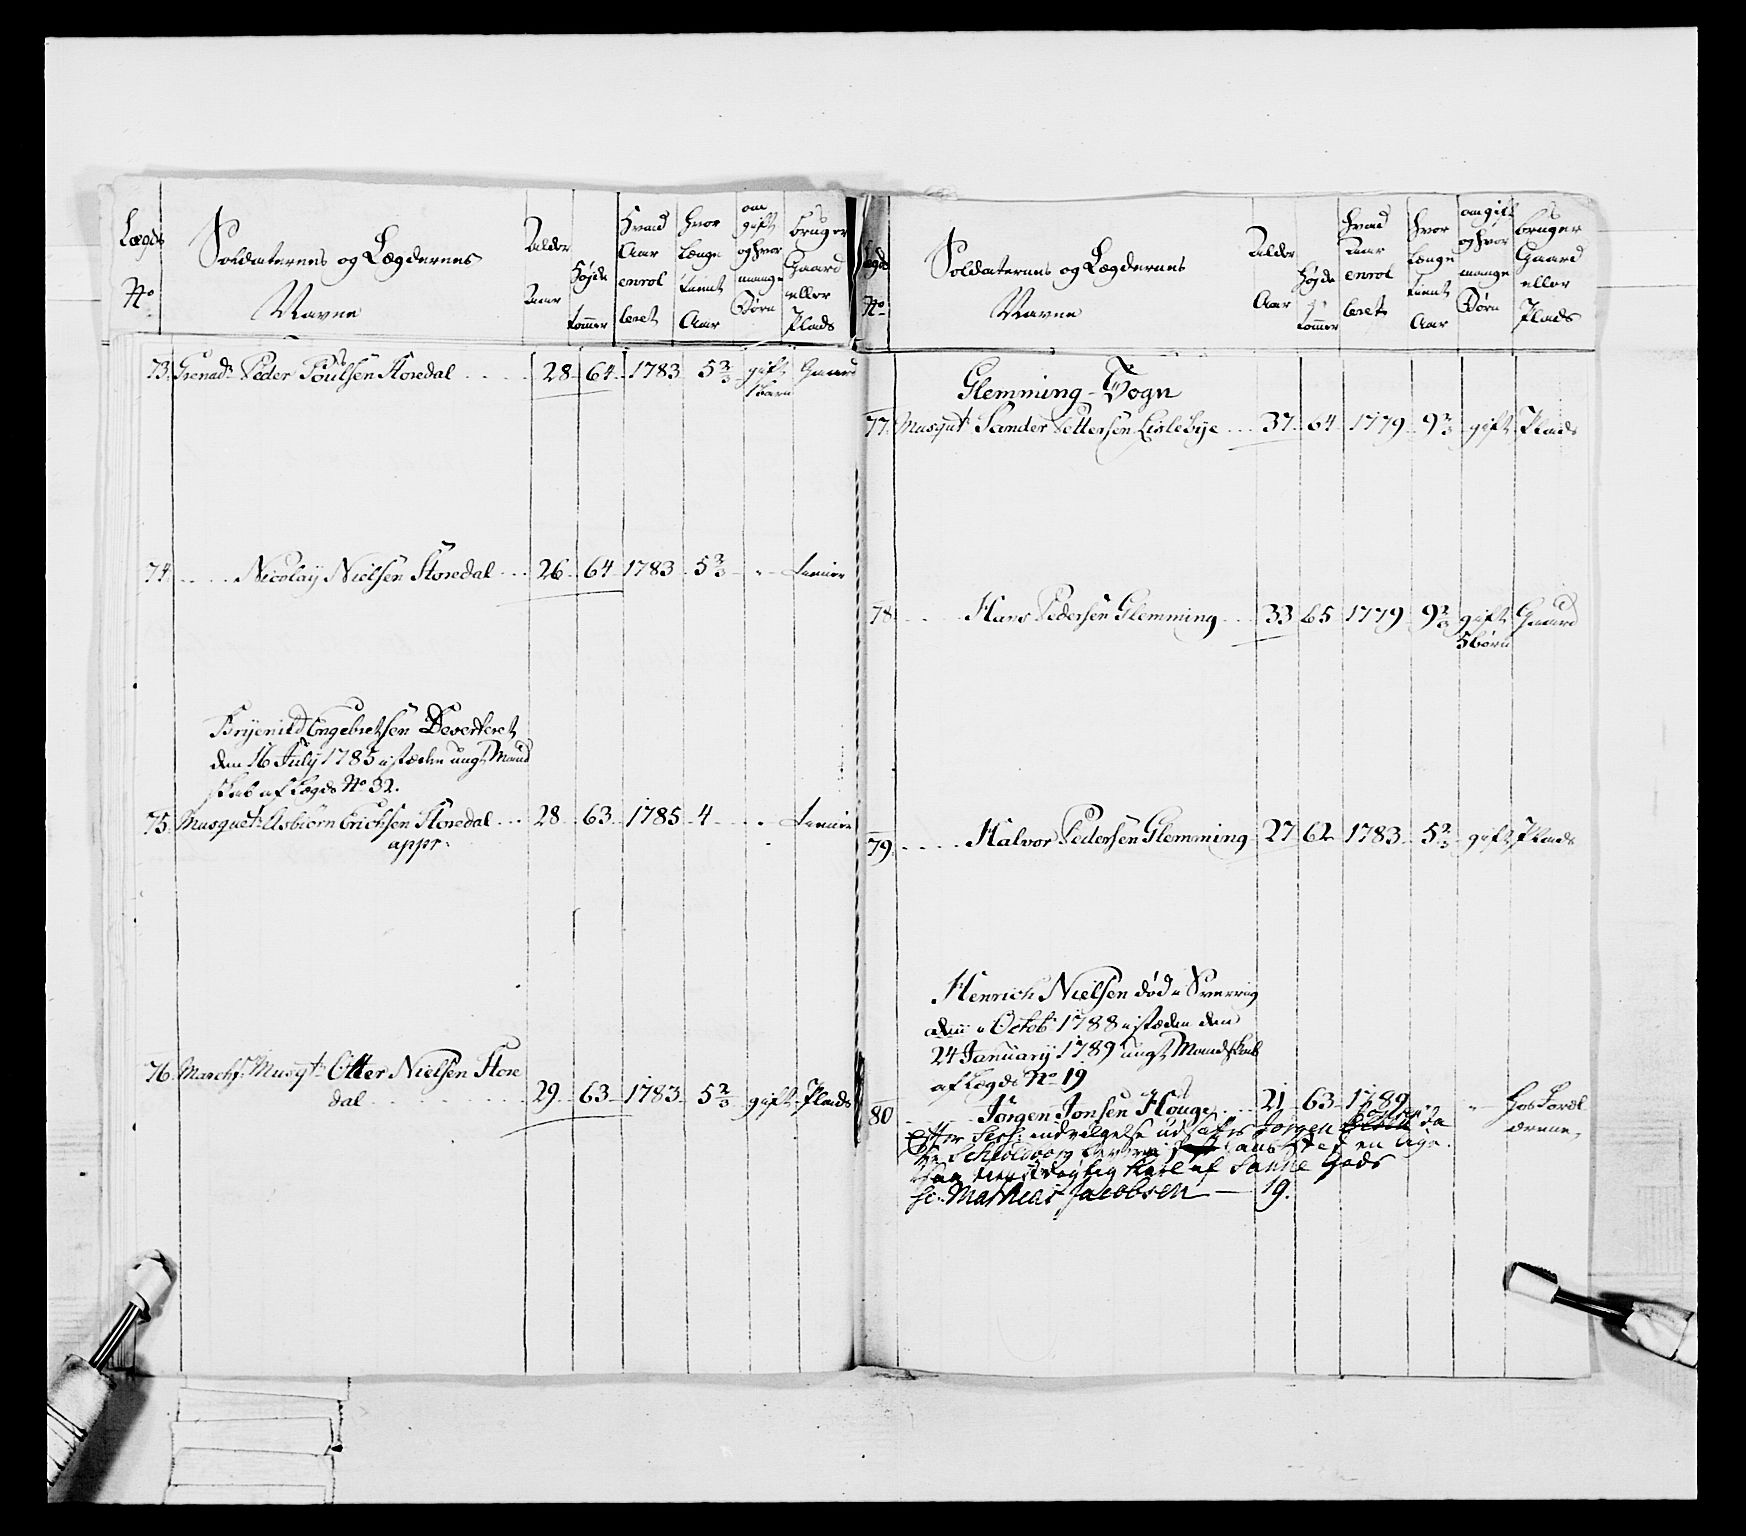 Lægds No
Soldaternes og Lægdernes Navne
Alder Aar
Høyde tommer
Hvad Aar enrolleret
Hvor længe tient Aar
om gift og hvor mange Børn
bruger Gaard eller Plads
73. Grenadr Peder Poulsen Storedal .... 28 64 1783 5 2/3 gift 1 barn Gaard
74. .... Nicolay Nielsen Storedal ... 26 64 1783 5 2/3 " tiener
Brynild Engebretsen Deserteret
den 16 July 1785 istæden ungt Mand
skab af Lægds No 32.
75. Musquet: Asbiørn Erichsen Storedal ... 28 63 1785 4 - " tiener
appr:
76. Marchf: Musqt: Otter Nielsen Store
dal ........ 29 63 1783 5 2/3 gift Plads
Lægds No
Soldaternes og Lægdernes Navne
Alder Aar
Høyde tommer
Hvad Aar enrolleret
Hvor længe tient Aar
om gift og hvor mange Børn
bruger Gaard eller Plads
Glemming-Sogn
77. Musqut: Sander Pettersen Lislebye ... 37 64 1779 9 2/3 gift Plads
78. .... Hans Pedersen Glemming ... 33 65 1779 9 2/3 gift 5 børn Gaard
79. .... Halvor Pedersen Glemming 27 62 1783 5 2/3 gift Plads
Henrich Nielsen død i Sverrig
den " Octobr 1788 istæden den
24 January 1789 ungt Mandskab
af Lægds No 19
80 .... Jørgen Jonsen Houge ... 21 63 1789 " hos Forældrene,
Efter Sess: indvilgelse udsættes Jørgen da
hr. leverer i hans sted en lige
saa dygtig Karl af samme Gods
sc: Mathias Jacobsen — 19.